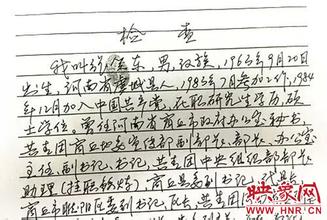 检查
我叫许东，男，汉族，1963年9月20日
出生，河南省虞城县人，1983年7月参加工作，1984
年12月加入中国共产党，在职研究生学历，硕
士学位。曾任河南省商丘市政府办公室秘书，
共青团商丘地委宣传部副部长、部长、办公室
主任、副书记、书记，共青团中央组织部部长
助理（挂职锻炼），商丘县委副书记、代县长，
商丘市睢阳区委副书记、区长，共青团河南
映象网
www.hnr.cn